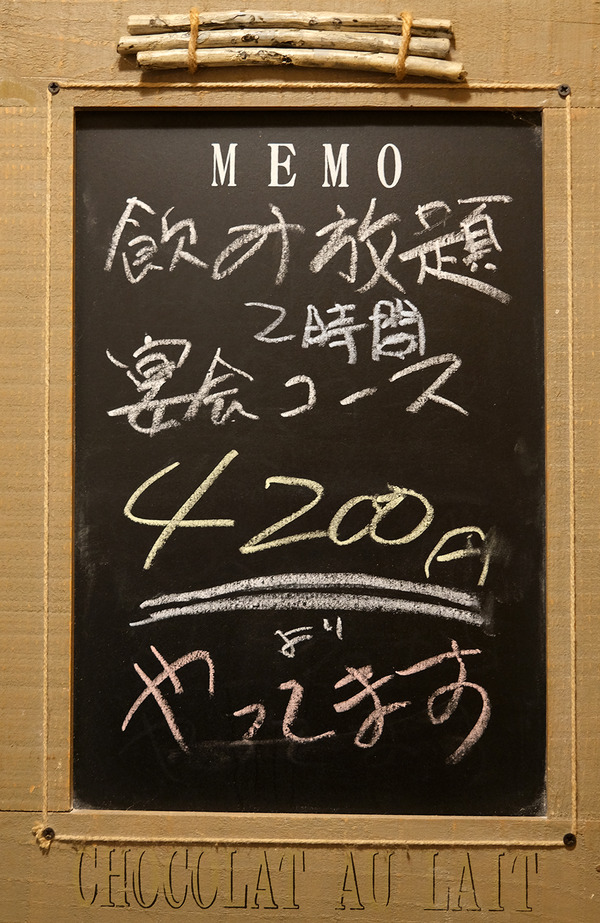 MEMO
飲み放題
2時間
宴会コース
4200円
より
やってます
CHOCOLAT AU LAIT